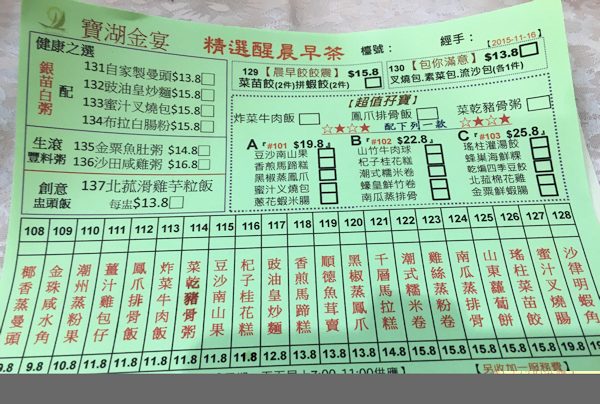 寶湖金宴
精選醒晨早茶
檯號：
經手：
【2015-11-16】
健康之選
銀苗白粥 配
131自家製曼頭$13.8
132豉油皇炒麵$15.8
133蜜汁叉燒包$15.8
134布拉白腸粉$15.8
生滾豐料粥
135金粟魚肚粥 $14.8
136沙田咸雞粥 $16.8
創意盅頭飯
137北菇滑雞芋粒飯
每盅$13.8
129【晨早餃餃震】 $15.8
菜苗餃(2件)拼蝦餃(2件)
130【包你滿意】 $13.8
叉燒包,素菜包,流沙包(各1件)
【超值孖寶】
炸菜牛肉飯
鳳爪排骨飯
菜乾豬骨粥
☆★☆★ 配下列一款 ☆★☆★
A『#101 $19.8』
豆沙南山果
香煎馬蹄糕
黑椒蒸鳳爪
蜜汁叉燒包
蔥花蝦米腸
B『#102 $22.8』
山竹牛肉球
杞子桂花糕
潮式糯米卷
蠔皇鮮竹卷
南瓜蒸排骨
C『#103 $25.8』
瑤柱灌湯餃
蜂巢海鮮粿
乾煸四季豆餃
北菇棉花雞
金粟鮮蝦腸
108 109 110 111 112 113 114 115 116 117 118 119 120 121 122 123 124 125 126 127 128
椰香蒸曼頭
金珠咸水角
潮州蒸粉果
薑汁雞包仔
鳳爪排骨飯
炸菜牛肉飯
菜乾豬骨粥
豆沙南山果
杞子桂花糕
豉油皇炒麵
香煎馬蹄糕
順德魚茸賣
黑椒蒸鳳爪
千層馬拉糕
潮式糯米卷
雞絲蒸粉卷
南瓜蒸排骨
山東蘿蔔餅
瑤柱菜苗餃
蜜汁叉燒腸
沙律明蝦角
9.8 9.8 10.8 11.8 11.8 11.8 11.8 11.8 11.8 12.8 12.8 13.8 13.8 13.8 15.8 15.8 15.8 15.8 15.8 15.8
【另收加一服務費】